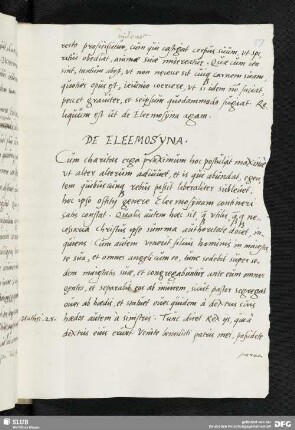 recte proficiscitur, cum qui castigat corpus suum, ut spi-
ritui obediat, animae suae misereatur. Quae cum ita
sint, tantum abest, ut non necesse sit cuiq carnem suam
quoties opus est, ieiunio macerare, ut si idem non faciat
peccet graviter, et seipsum quodammodo iugulat. Re-
liquum est ut de Eleemosÿna agam.
DE ELEEMOSŸNA.
Cum charitas erga proximum hoc postulat maxime
ut alter alterum adiuvet, et is qui abundat, egen-
tem quibuscunq rebus possit liberaliter sublevet,
hoc ipso officij genere Eleemosÿnam contineri
satis constat. Qualis autem haec sit, q̃ utilis, q̃ q ne-
cessaria Christus ipse summa authoritate docet, in-
quiens Cum autem venerit filius hominis in maiesta-
te sua, et omnes angeli cum eo, tunc sedebit super se-
dem maiestatis suae, et congregabuntur ante eum omnes
gentes, et separabit eos ab invicem, sicut pastor segregat
oves ab hoedis, et statuet oves quidem à dextris suis
Matth. 25. hoedos autem à sinistris. Tunc dicet Rex ijs, qui à
dextris eius erunt Venite benedicti patris mei, possidete